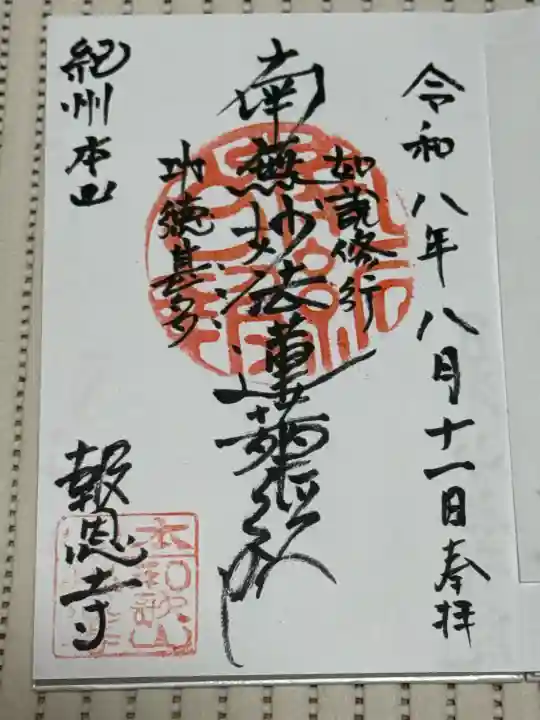 令和八年八月十一日奉拝
如説修行
南無妙法蓮華経
功徳甚多
紀州本山
報恩寺